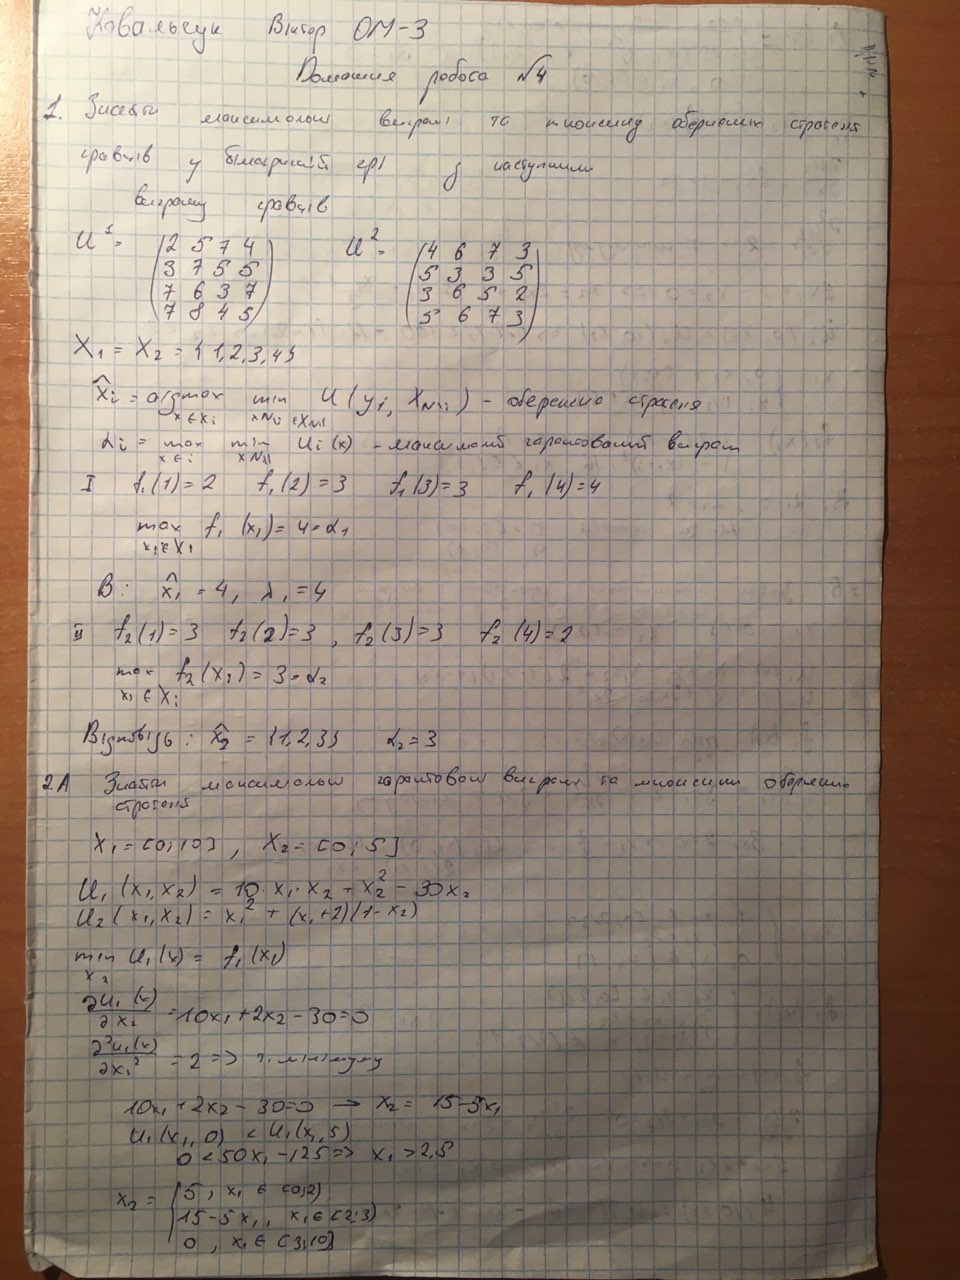 Ковальчук Віктор ОМ-3
Домашня робота №4
1. Знайти максимальні виграші та множину обережних стратегій
гравців у біматричній грі з наступними
виграшу гравців
U¹ = (2 5 7 4
3 7 5 5
7 6 3 7
7 8 4 5)
U² = (4 6 7 3
5 3 3 5
3 6 5 2
5 6 7 3)
X₁ = X₂ = {1,2,3,4}
x̂ᵢ = argmax min U(yᵢ, x_N\i) - обережна стратегія
x∈Xᵢ x_N\i∈X_N\i
αᵢ = max min Uᵢ(x) - максимальний гарантований виграш
x∈i x_N\i
I f₁(1)=2 f₁(2)=3 f₁(3)=3 f₁(4)=4
max f₁(x₁)=4=α₁
x₁∈X₁
В: x̂₁=4, λ₁=4
II f₂(1)=3 f₂(2)=3, f₂(3)=3 f₂(4)=2
max f₂(x₂)=3=α₂
Відповідь: x̂₂ = {1,2,3} α₂=3
2A Знайти максимальні гарантовані виграші та множини обережних
стратегій
X₁=[0;10], X₂=[0;5]
U₁(x₁,x₂) = 10·x₁·x₂ + x₂² - 30x₂
U₂(x₁,x₂) = x₁² + (x₁+2)(1-x₂)
min U₁(x) = f₁(x₁)
x₂
∂U₁(x)/∂x₂ = 10x₁+2x₂-30=0
∂²U₁(x)/∂x₁² = 2 => т. мінімуму
10x₁+2x₂-30=0 → x₂ = 15-5x₁
U₁(x₁,0) < U₁(x₁,5)
0<50x₁-125 => x₁>2,5
x₂ = {5, x₁∈[0;2)
15-5x₁, x₁∈[2;3)
0, x₁∈[3;10]